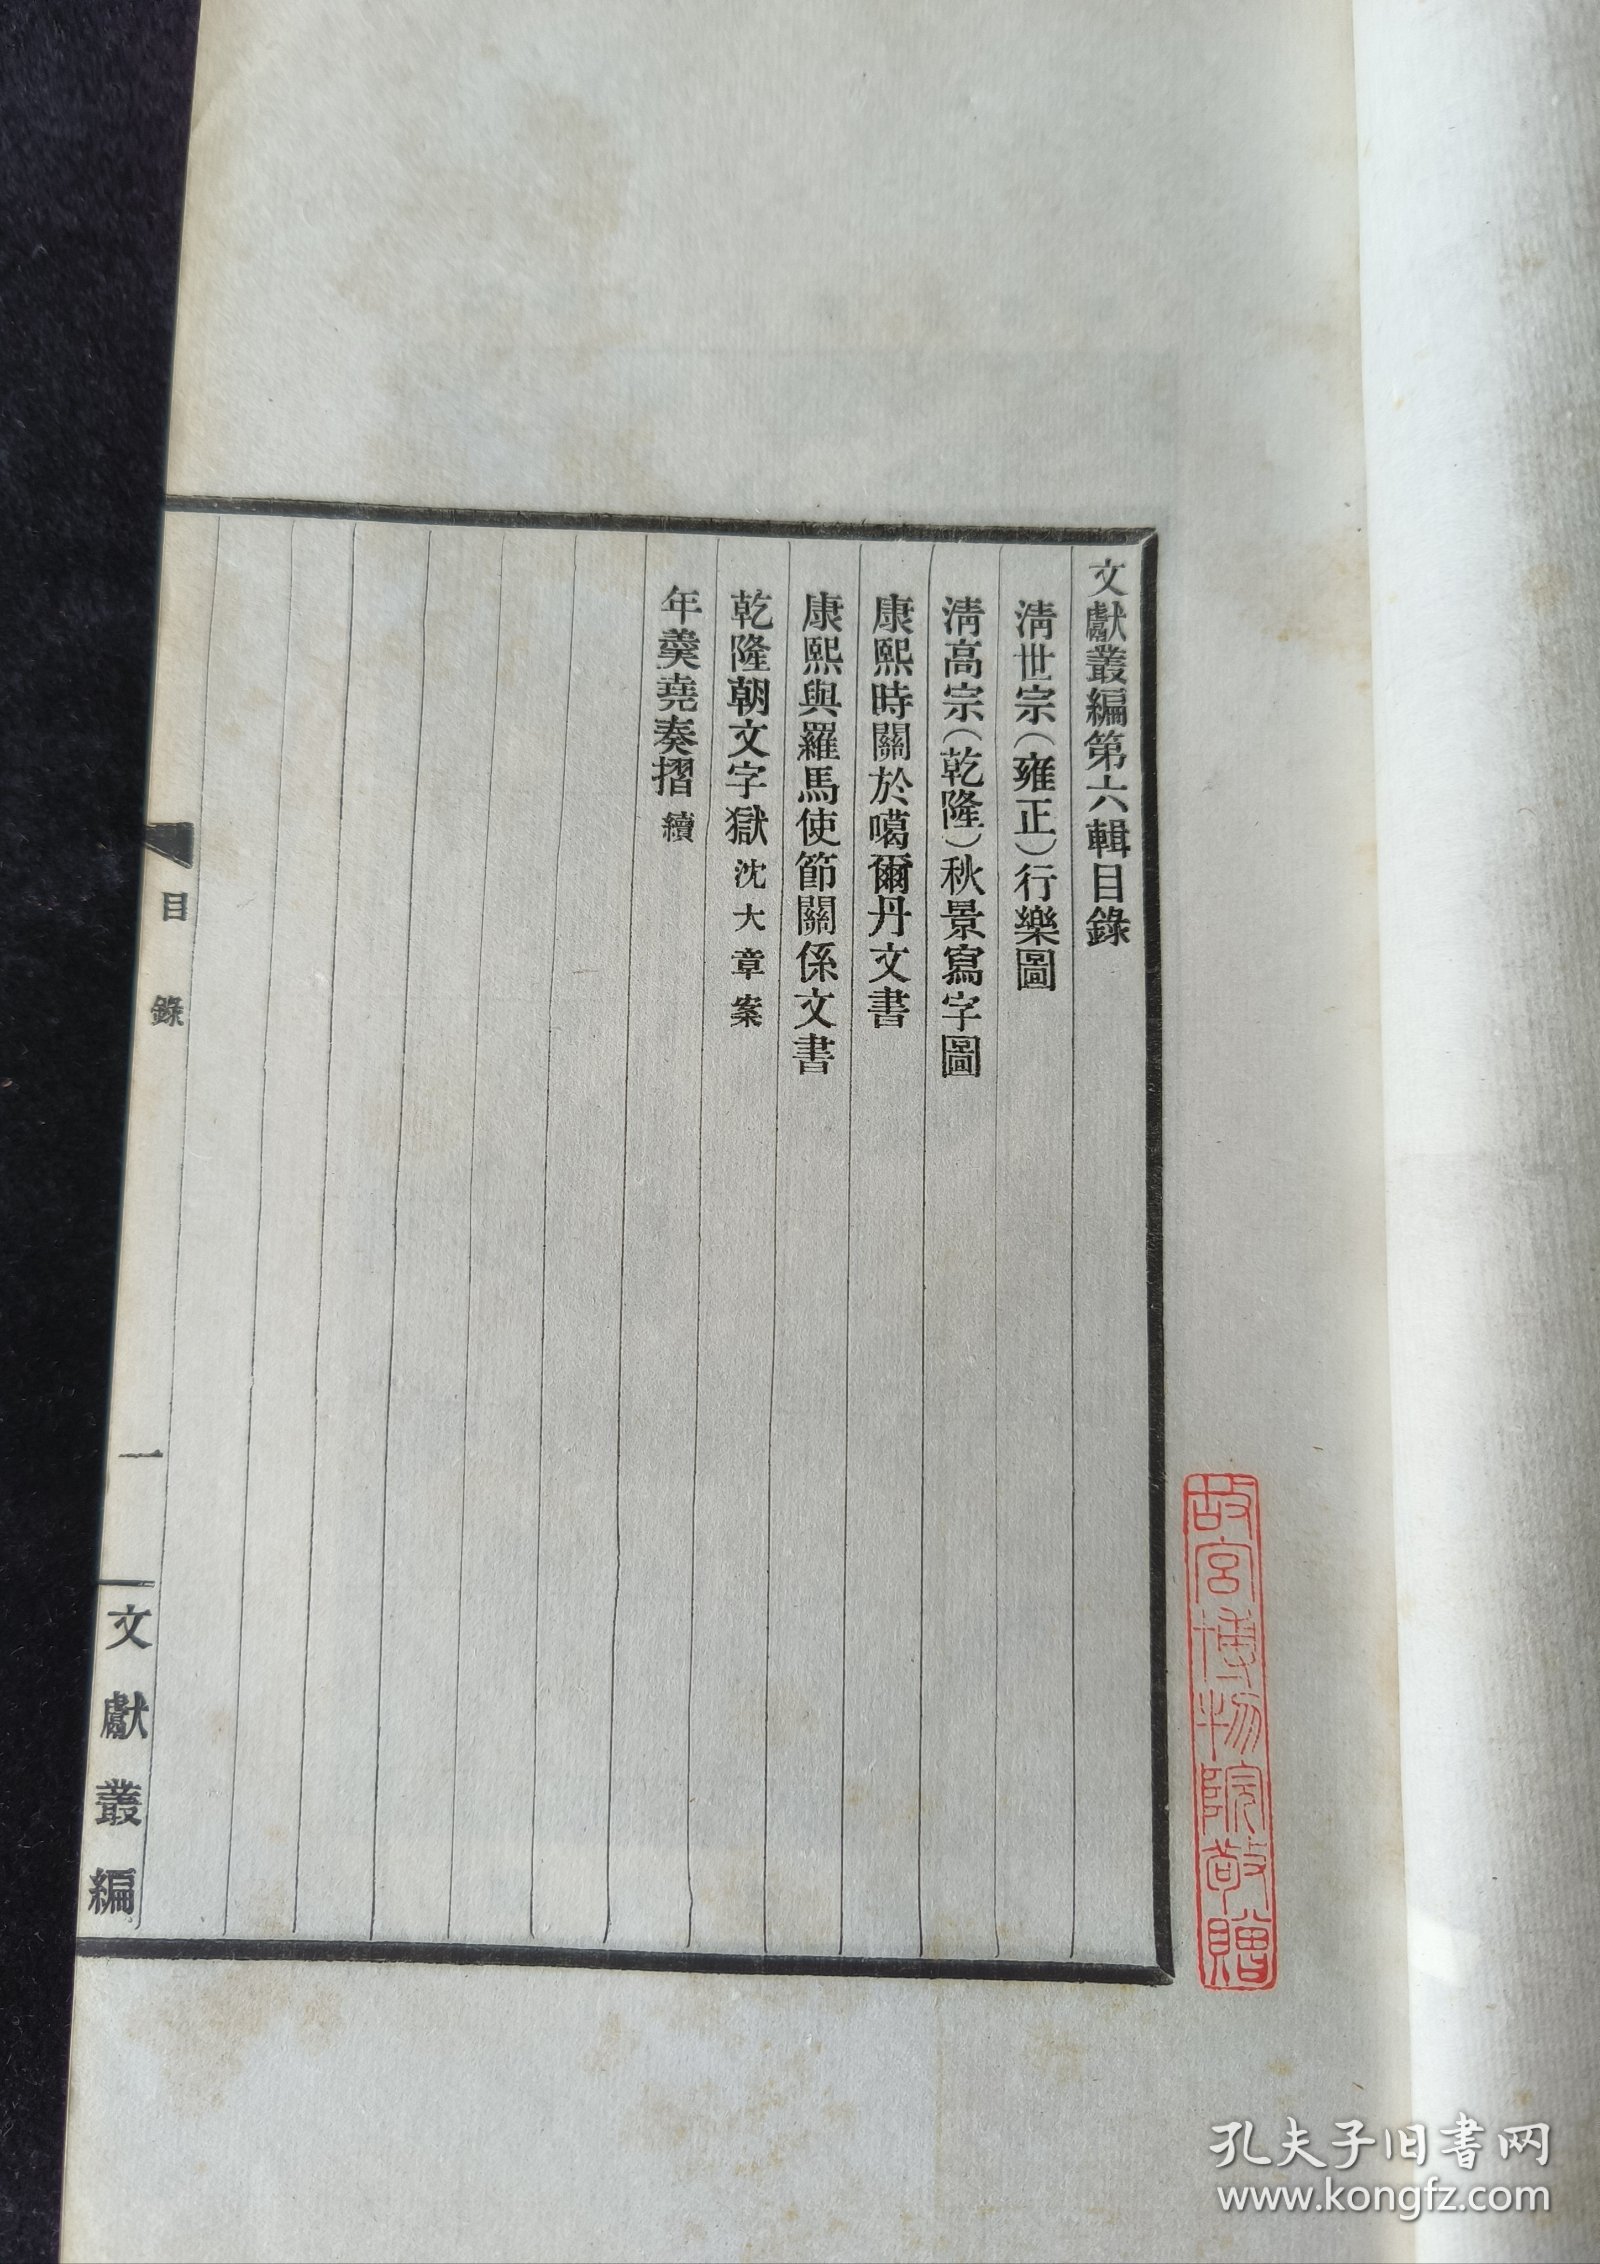 文獻叢編第六輯目錄
清世宗（雍正）行樂圖
清高宗（乾隆）秋景寫字圖
康熙時關於噶爾丹文書
康熙與羅馬使節關係文書
乾隆朝文字獄 沈大章案
年羹堯奏摺 續
目錄
一
文獻叢編
故宮博物院敬贈
孔夫子旧书网
www.kongfz.com